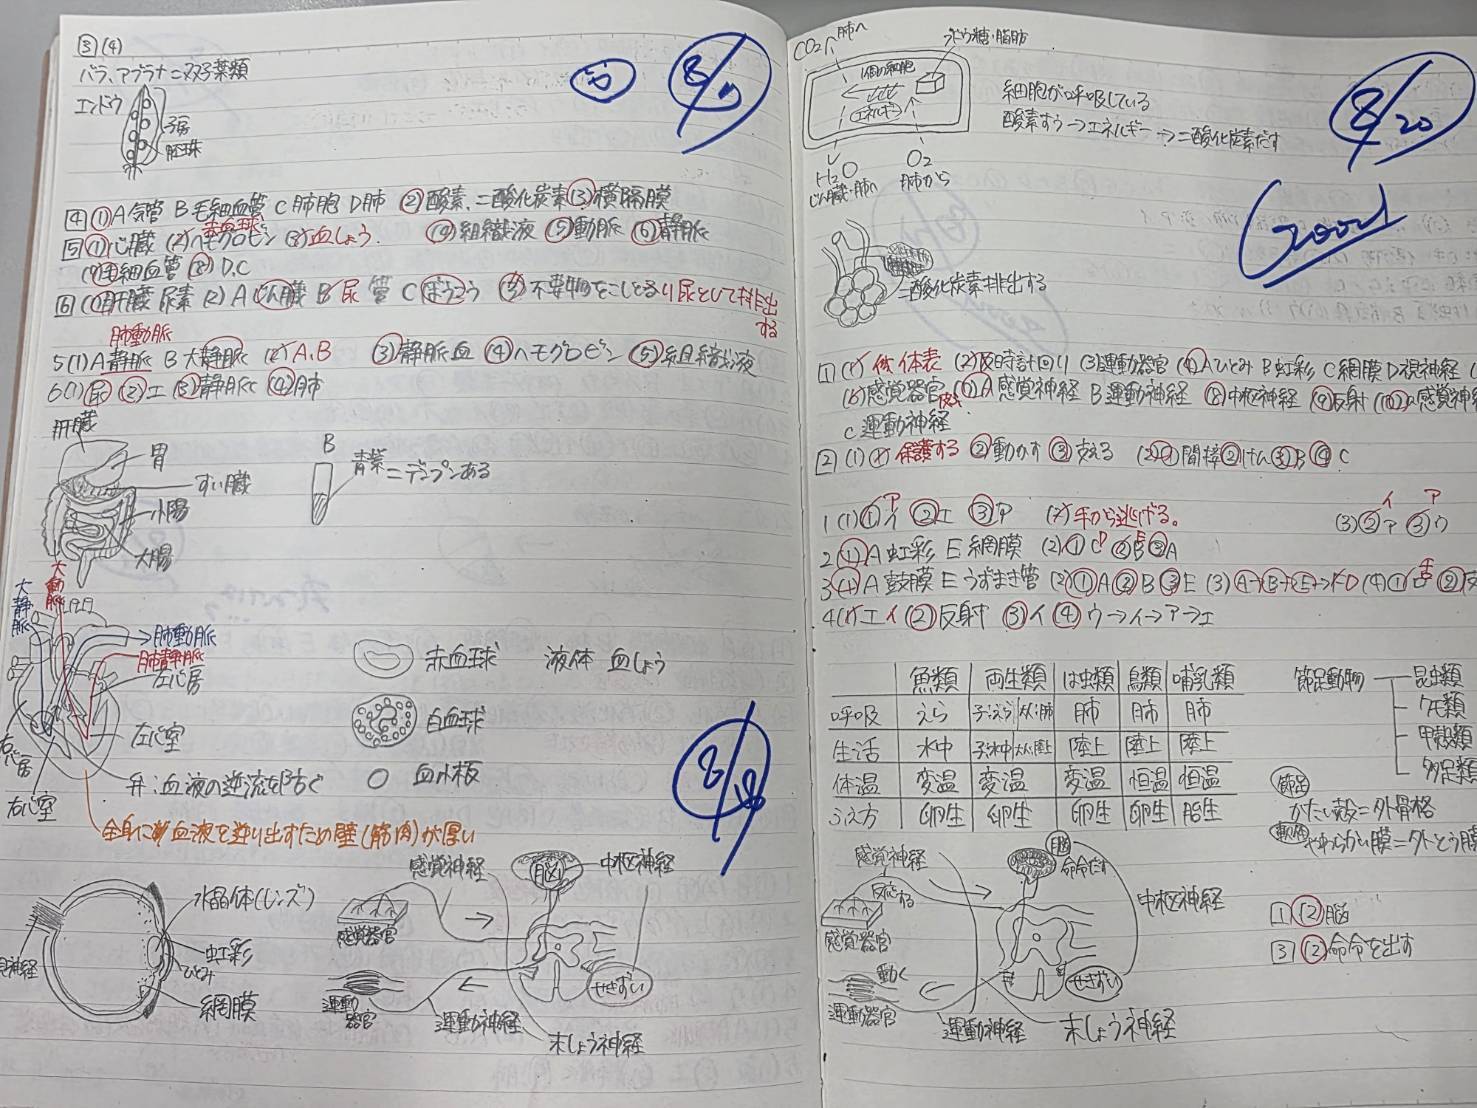 ③(4)
バラ、アブラナ=双子葉類
エンドウ
子房
胚珠
8/17
④ ①A 気管 B 毛細血管 C 肺胞 D 肺 ②酸素、二酸化炭素 ③横隔膜
赤血球
⑤ ①心臓 (2)ヘモグロビン (3)血しょう (4)組織液 ⑤動脈 ⑥静脈
(7)毛細血管 (8)D.C
⑥ (1)肝臓 尿素 (2)A じん臓 B 尿管 C ぼうこう (3)不要物をこしとり尿として排出する
肺動脈
5(1)A 静脈 B 大静脈 (2)A.B ③静脈血 ④ヘモグロビン ⑤組織液
6(1)尿 ②エ ③静脈 ④肺
肝臓
胃
すい臓
小腸
大腸
B
青紫=デンプンある
大静脈
大動脈
肺動脈
肺静脈
左心房
左心室
右心房
右心室
弁:血液の逆流を防ぐ
全身に血液を送り出すため壁(筋肉)が厚い
赤血球 液体 血しょう
白血球
血小板
8/18
水晶体(レンズ)
虹彩
ひとみ
網膜
視神経
感覚神経
脳
中枢神経
感覚器官
せきずい
運動器官
運動神経
末しょう神経
8/20
Good
CO2
肺へ
ぶどう糖・脂肪
1個の細胞
エネルギー
H2O
じん臓・肺へ
O2
肺から
細胞が呼吸している
酸素すう→エネルギー→二酸化炭素だす
二酸化炭素排出する
① (1) 体表 (2)反時計回り (3)運動器官 (4)Aひとみ B虹彩 C網膜 D視神経
(6)感覚器官 A 感覚神経 B 運動神経 ⑧中枢神経 ⑨反射 (10)a感覚神経
C 運動神経
② (1) 保護する ②動かす ③支える (2)①関接 ②けん ③B ④C
1 (1)①イ ア ②エ ③ア (2)手から逃げる。 (3)②ア イ ③ウ ア
2 ①A 虹彩 E 網膜 (2)①C D ②B E ③A
3 (1)A 鼓膜 E うずまき管 (2)①A ②B ③E (3)A→B→E→D (4)①舌
4(1)エ イ ②反射 ③イ ④ウ→イ→ア→エ
魚類 両生類 は虫類 鳥類 哺乳類
呼吸 えら 子:えら 大人:肺 肺 肺 肺
生活 水中 子:水中 大人:陸上 陸上 陸上 陸上
体温 変温 変温 変温 恒温 恒温
ふえ方 卵生 卵生 卵生 卵生 胎生
節足動物
昆虫類
クモ類
甲殻類
多足類
節足
かたい殻=外骨格
軟体
やわらかい膜=外とう膜
感覚神経
反応する
脳
命令だす
中枢神経
感覚器官
動く
せきずい
運動器官
運動神経
末しょう神経
① (2)脳
③ (2)命令を出す